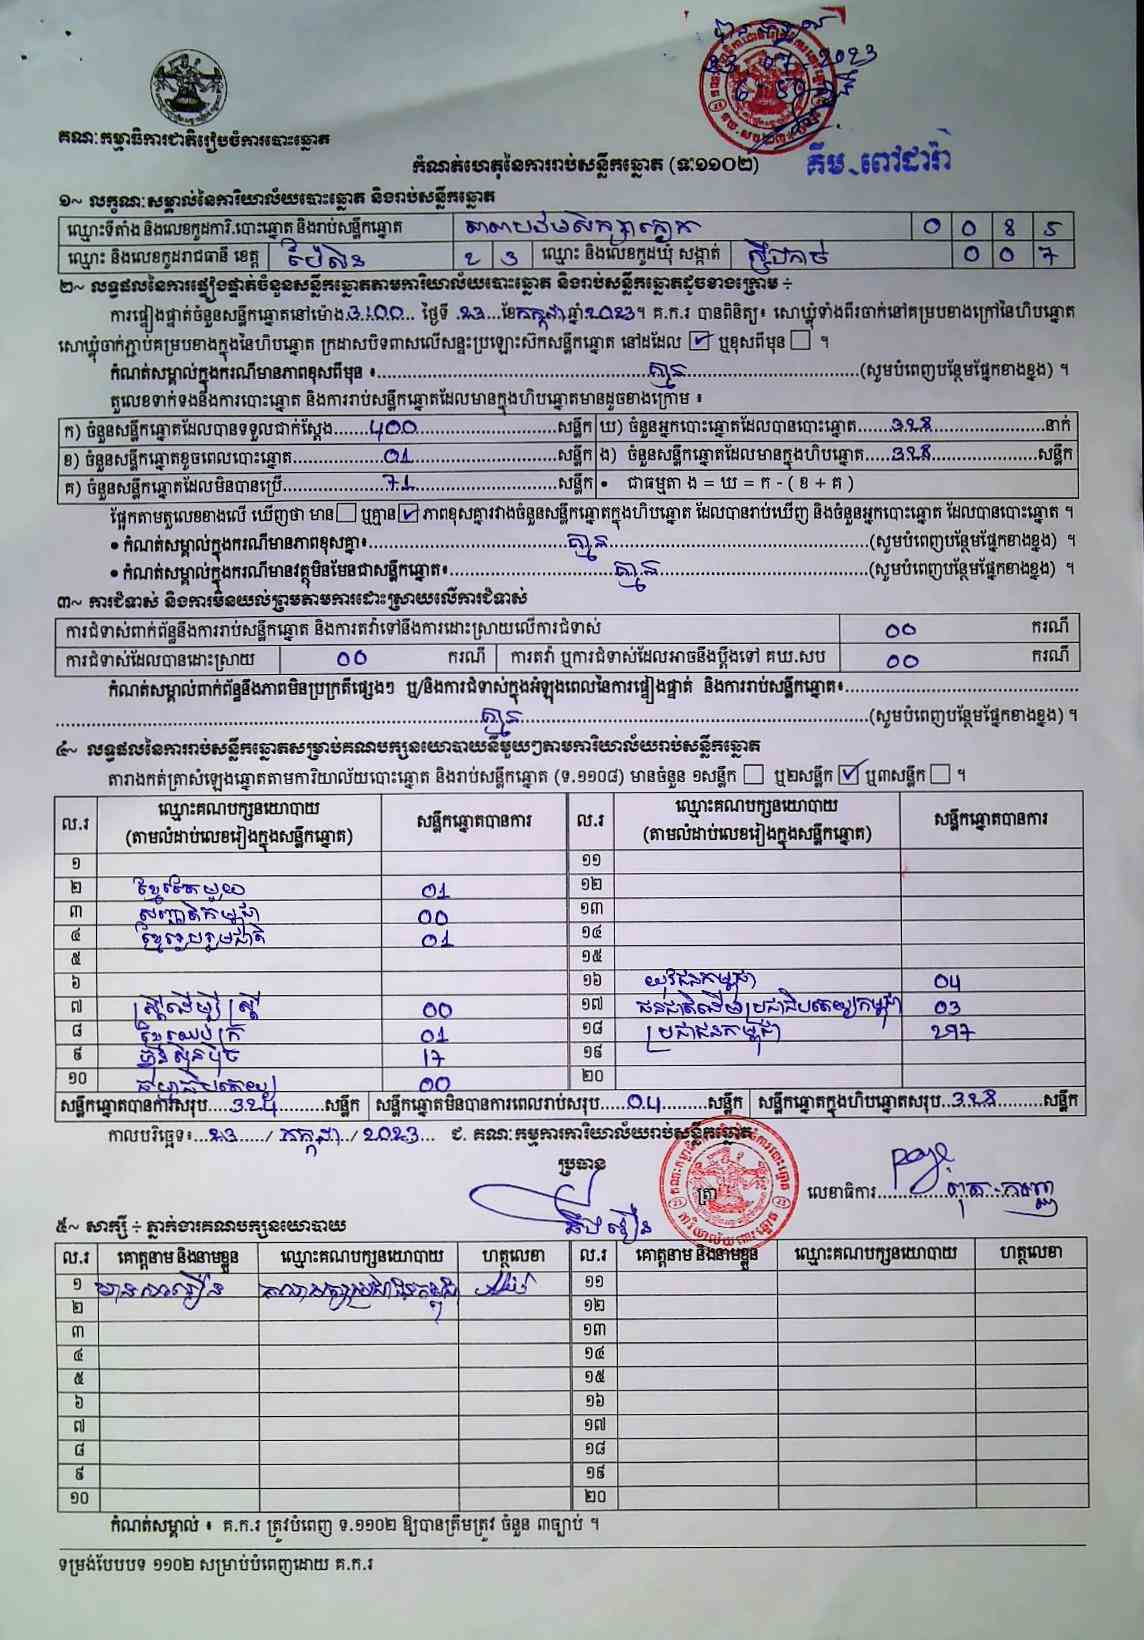 គណៈកម្មាធិការជាតិរៀបចំការបោះឆ្នោត
កំណត់ហេតុនៃការរាប់សន្លឹកឆ្នោត (ទ.១១០២)
គឹម ពៅដារ៉ា
១~ លក្ខណៈសម្គាល់នៃការិយាល័យបោះឆ្នោត និងរាប់សន្លឹកឆ្នោត
ឈ្មោះទីតាំង និងលេខកូដការិ.បោះឆ្នោត និងរាប់សន្លឹកឆ្នោត 0 0 8 5
ឈ្មោះ និងលេខកូដរាជធានី ខេត្ត ប៉ៃលិន 2 3 ឈ្មោះ និងលេខកូដឃុំ សង្កាត់ ស្ទឹងកាច់ 0 0 7
២~ លទ្ធផលនៃការផ្ទៀងផ្ទាត់ចំនួនសន្លឹកឆ្នោតតាមការិយាល័យបោះឆ្នោត និងរាប់សន្លឹកឆ្នោតដូចខាងក្រោម ÷
ការផ្ទៀងផ្ទាត់ចំនួនសន្លឹកឆ្នោតនៅម៉ោង 3:00 ថ្ងៃទី 23 ខែ កក្កដា ឆ្នាំ 2023។ គ.ក.រ បានពិនិត្យ៖ សោឃ្លុំទាំងពីរចាក់នៅគម្របខាងក្រៅនៃហិបឆ្នោត
សោឃ្លុំចាក់ភ្ជាប់គម្របខាងក្នុងនៃហិបឆ្នោត ក្រដាសបិទពាសលើសន្ទះប្រឡោះស៊កសន្លឹកឆ្នោត នៅដដែល ☑ ឬខុសពីមុន ☐ ។
កំណត់សម្គាល់ក្នុងករណីមានភាពខុសពីមុន ៖ គ្មាន (សូមបំពេញបន្ថែមផ្នែកខាងខ្នង) ។
តួលេខទាក់ទងនឹងការបោះឆ្នោត និងការរាប់សន្លឹកឆ្នោតដែលមានក្នុងហិបឆ្នោតមានដូចខាងក្រោម ៖
ក) ចំនួនសន្លឹកឆ្នោតដែលបានទទួលជាក់ស្តែង 400 សន្លឹក ឃ) ចំនួនអ្នកបោះឆ្នោតដែលបានបោះឆ្នោត 328 នាក់
ខ) ចំនួនសន្លឹកឆ្នោតខូចពេលបោះឆ្នោត 01 សន្លឹក ង) ចំនួនសន្លឹកឆ្នោតដែលមានក្នុងហិបឆ្នោត 328 សន្លឹក
គ) ចំនួនសន្លឹកឆ្នោតដែលមិនបានប្រើ 71 សន្លឹក • ជាធម្មតា ង = ឃ = ក - ( ខ + គ )
ផ្អែកតាមតួលេខខាងលើ ឃើញថា មាន ☐ ឬគ្មាន ☑ ភាពខុសគ្នារវាងចំនួនសន្លឹកឆ្នោតក្នុងហិបឆ្នោត ដែលបានរាប់ឃើញ និងចំនួនអ្នកបោះឆ្នោត ដែលបានបោះឆ្នោត ។
• កំណត់សម្គាល់ក្នុងករណីមានភាពខុសគ្នា៖ គ្មាន (សូមបំពេញបន្ថែមផ្នែកខាងខ្នង) ។
• កំណត់សម្គាល់ក្នុងករណីមានវត្ថុមិនមែនជាសន្លឹកឆ្នោត៖ គ្មាន (សូមបំពេញបន្ថែមផ្នែកខាងខ្នង) ។
៣~ ការជំទាស់ និងការមិនយល់ព្រមតាមការដោះស្រាយលើការជំទាស់
ការជំទាស់ពាក់ព័ន្ធនឹងការរាប់សន្លឹកឆ្នោត និងការតវ៉ាទៅនឹងការដោះស្រាយលើការជំទាស់ 00 ករណី
ការជំទាស់ដែលបានដោះស្រាយ 00 ករណី ការតវ៉ា ឬការជំទាស់ដែលអាចនឹងប្តឹងទៅ គឃ.សប 00 ករណី
កំណត់សម្គាល់ពាក់ព័ន្ធនឹងភាពមិនប្រក្រតីផ្សេងៗ ឬ/និងការជំទាស់ក្នុងអំឡុងពេលនៃការផ្ទៀងផ្ទាត់ និងការរាប់សន្លឹកឆ្នោត៖
គ្មាន (សូមបំពេញបន្ថែមផ្នែកខាងខ្នង) ។
៤~ លទ្ធផលនៃការរាប់សន្លឹកឆ្នោតសម្រាប់គណបក្សនយោបាយនីមួយៗតាមការិយាល័យរាប់សន្លឹកឆ្នោត
តារាងកត់ត្រាសំឡេងឆ្នោតតាមការិយាល័យបោះឆ្នោត និងរាប់សន្លឹកឆ្នោត (ទ.១១០៨) មានចំនួន ១សន្លឹក ☐ ឬ២សន្លឹក ☑ ឬ៣សន្លឹក ☐ ។
ល.រ ឈ្មោះគណបក្សនយោបាយ (តាមលំដាប់លេខរៀងក្នុងសន្លឹកឆ្នោត) សន្លឹកឆ្នោតបានការ ល.រ ឈ្មោះគណបក្សនយោបាយ (តាមលំដាប់លេខរៀងក្នុងសន្លឹកឆ្នោត) សន្លឹកឆ្នោតបានការ
១ ១១
២ ខ្មែរតែមួយ 01 ១២
៣ សញ្ជាតិកម្ពុជា 00 ១៣
៤ ខ្មែររួបរួមជាតិ 01 ១៤
៥ ១៥
៦ ១៦ យុវជនកម្ពុជា 04
៧ ស្ត្រីដើម្បីស្ត្រី 00 ១៧ ជនជាតិដើមប្រជាធិបតេយ្យកម្ពុជា 03
៨ ខ្មែរឈប់ក្រ 01 ១៨ ប្រជាជនកម្ពុជា 297
៩ ហ៊្វុនស៊ិនប៉ិច 17 ១៩
១០ ធម្មាធិបតេយ្យ 00 ២០
សន្លឹកឆ្នោតបានការសរុប 324 សន្លឹក សន្លឹកឆ្នោតមិនបានការពេលរាប់សរុប 04 សន្លឹក សន្លឹកឆ្នោតក្នុងហិបឆ្នោតសរុប 328 សន្លឹក
កាលបរិច្ឆេទ៖ 23 / កក្កដា / 2023 ជ. គណៈកម្មការការិយាល័យរាប់សន្លឹកឆ្នោត
ប្រធាន
ត្រា
លេខាធិការ
៥~ សាក្សី ÷ ភ្នាក់ងារគណបក្សនយោបាយ
ល.រ គោត្តនាម និងនាមខ្លួន ឈ្មោះគណបក្សនយោបាយ ហត្ថលេខា ល.រ គោត្តនាម និងនាមខ្លួន ឈ្មោះគណបក្សនយោបាយ ហត្ថលេខា
១ គណបក្សប្រជាជនកម្ពុជា ១១
២ ១២
៣ ១៣
៤ ១៤
៥ ១៥
៦ ១៦
៧ ១៧
៨ ១៨
៩ ១៩
១០ ២០
កំណត់សម្គាល់ ៖ គ.ក.រ ត្រូវបំពេញ ទ.១១០២ ឱ្យបានត្រឹមត្រូវ ចំនួន ៣ច្បាប់ ។
ទម្រង់បែបបទ ១១០២ សម្រាប់បំពេញដោយ គ.ក.រ